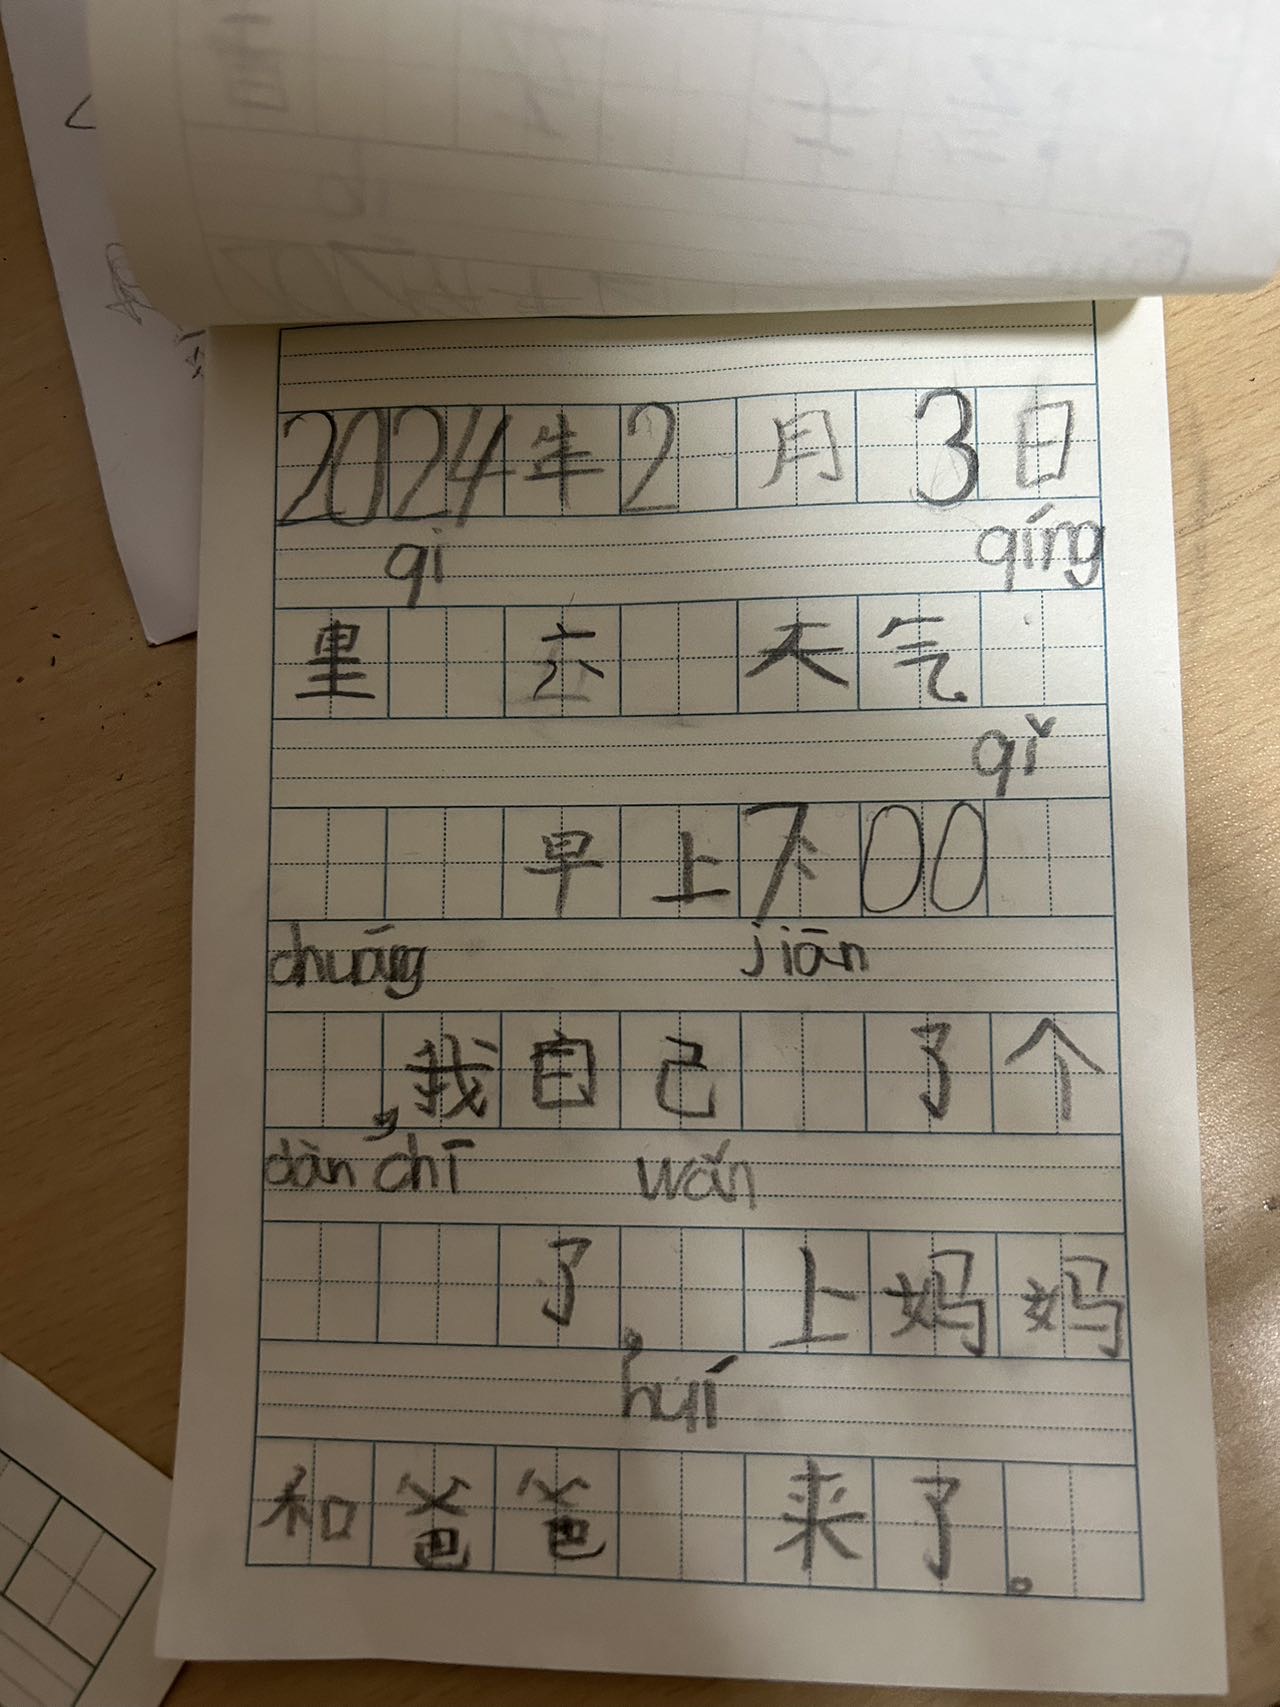 2024年2月3日
qi qíng
里 六 天气
qǐ
早上7:00
chuáng jiān
,我自己 了个
dàn chī wǎn
了, 上妈妈
huí
和爸爸 来了。